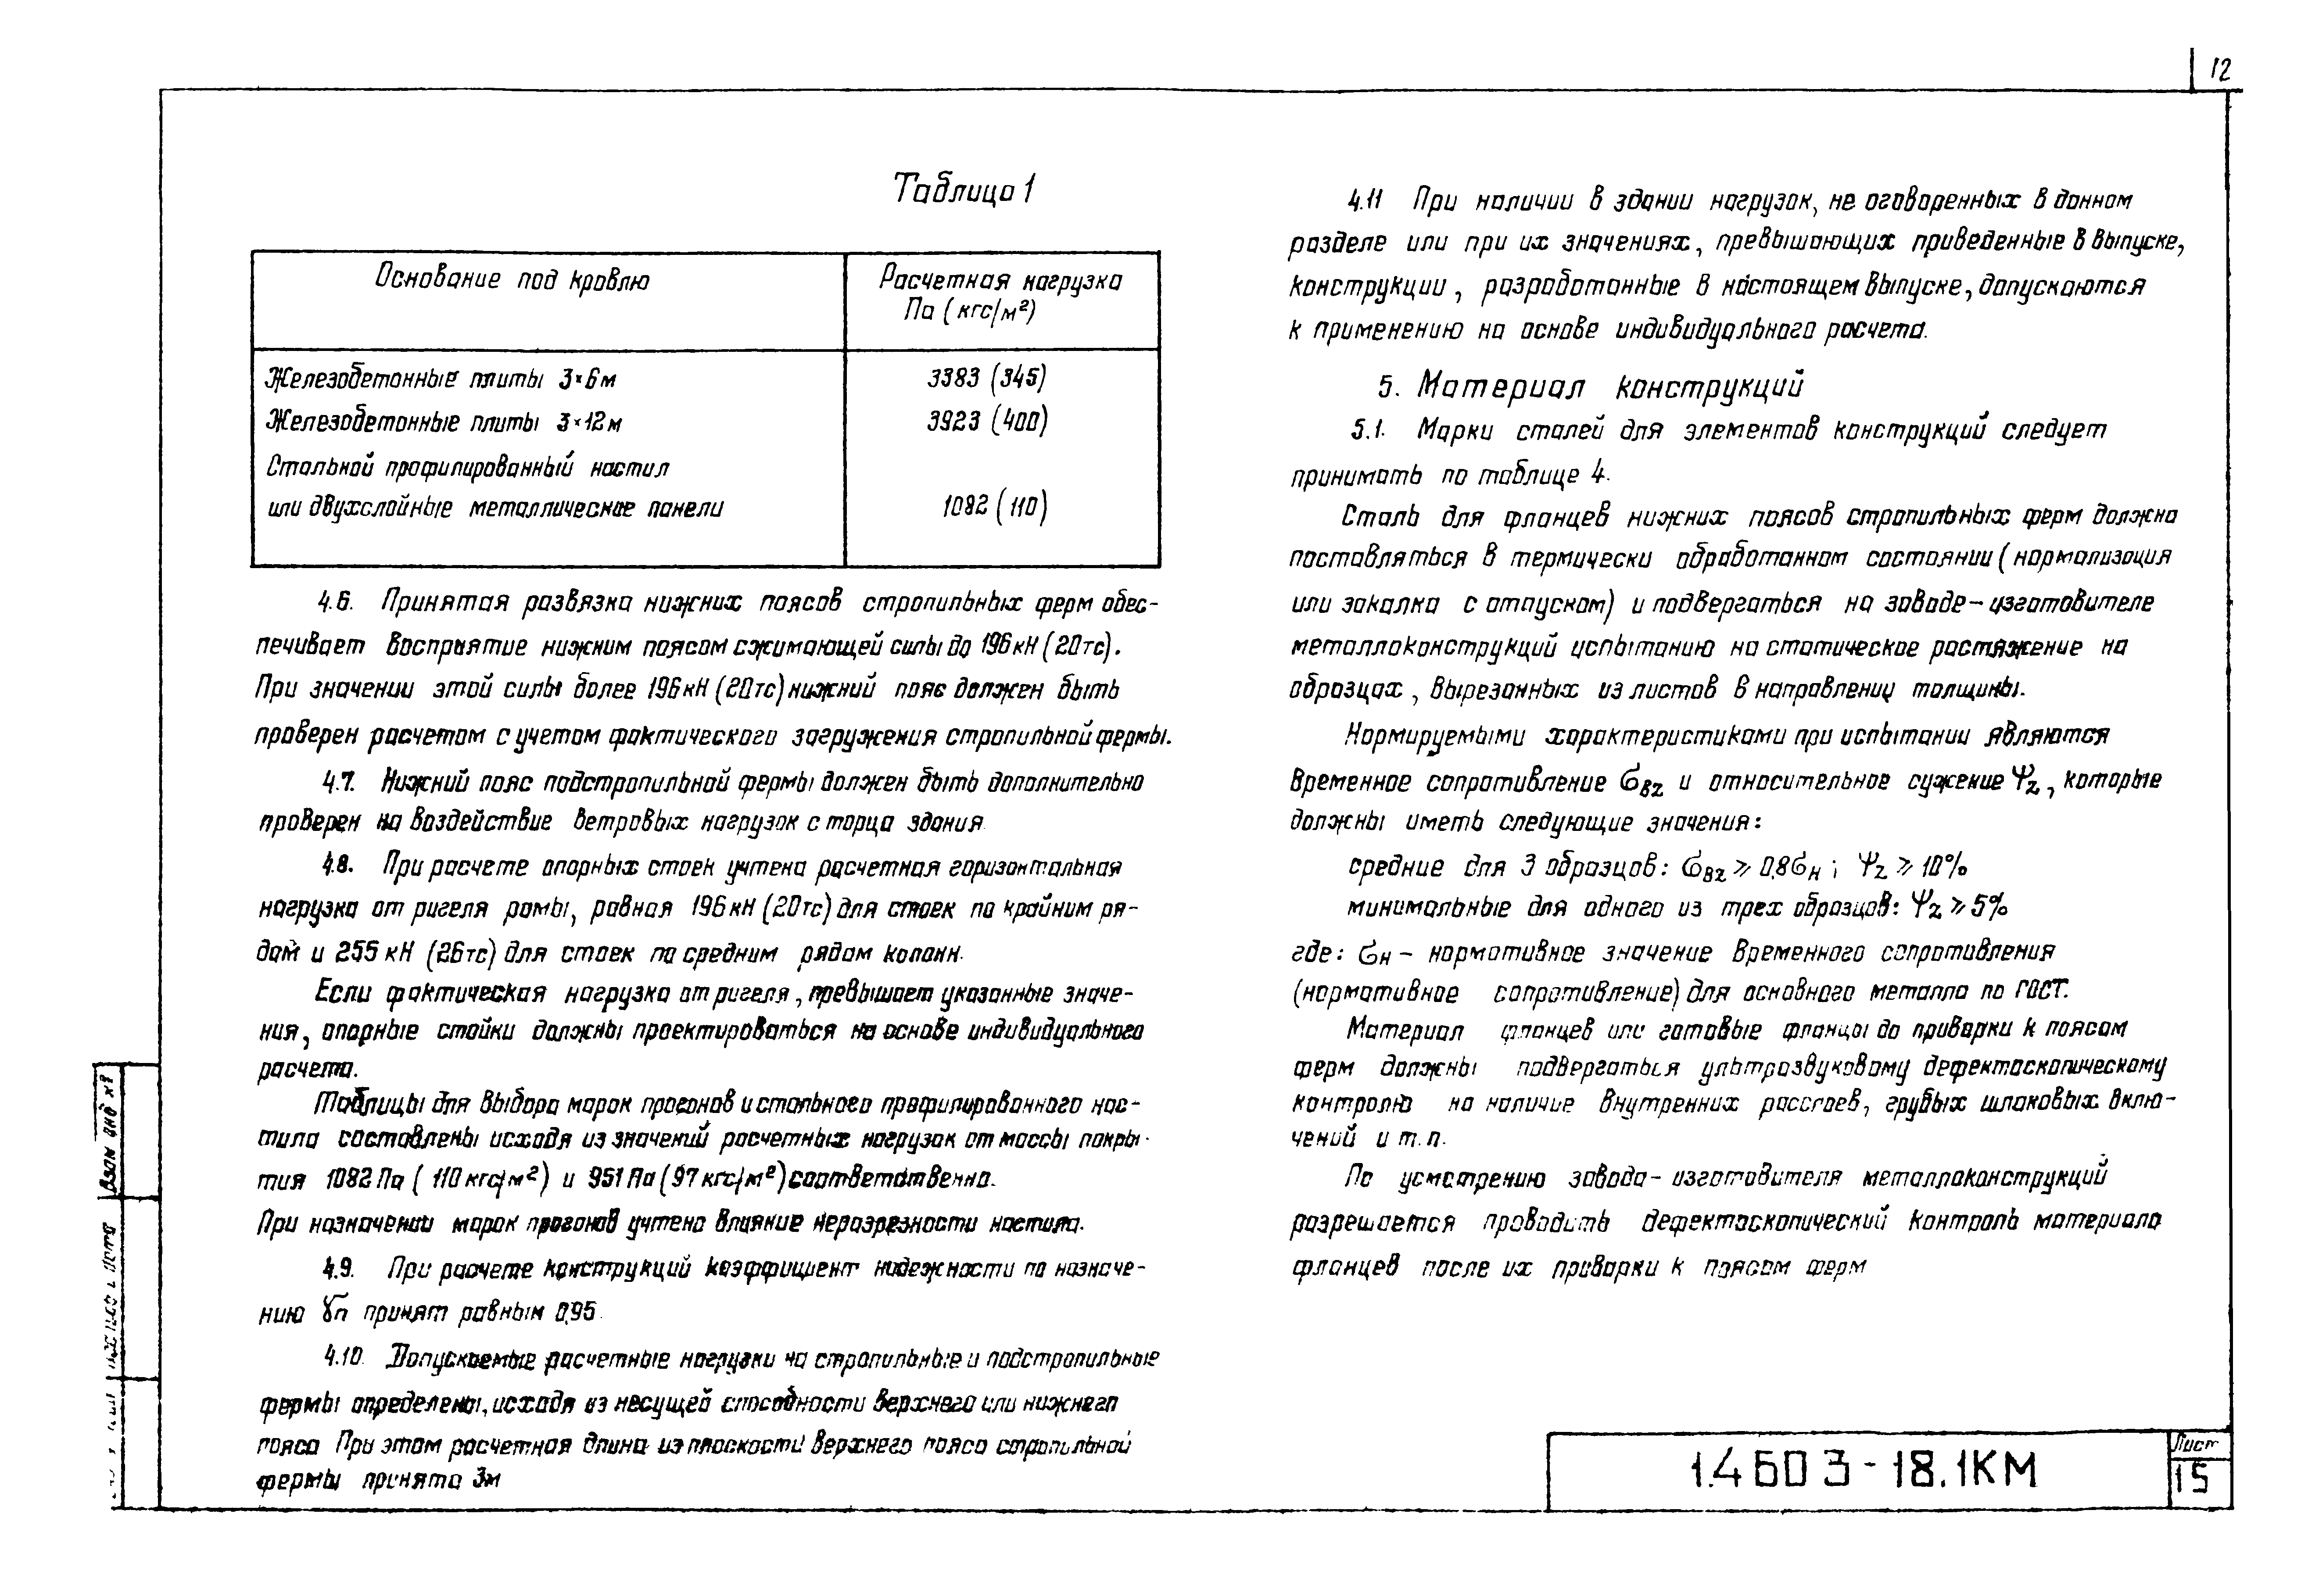 12
Таблица 1
Основание под кровлю
Расчетная нагрузка
Па (кгс/м²)
Железобетонные плиты 3×6м
3383 (345)
Железобетонные плиты 3×12м
3923 (400)
Стальной профилированный настил
или двухслойные металлические панели
1082 (110)
4.6. Принятая развязка нижних поясов стропильных ферм обес-
печивает восприятие нижним поясом сжимающей силы до 196кН (20тс).
При значении этой силы более 196кН (20тс) нижний пояс должен быть
проверен расчетом с учетом фактического загружения стропильной фермы.
4.7. Нижний пояс подстропильной фермы должен быть дополнительно
проверен на воздействие ветровых нагрузок с торца здания.
4.8. При расчете опорных стоек учтена расчетная горизонтальная
нагрузка от ригеля рамы, равная 196кН (20тс) для стоек по крайним ря-
дам и 255кН (26тс) для стоек по средним рядам колонн.
Если фактическая нагрузка от ригеля, превышает указанные значе-
ния, опорные стойки должны проектироваться на основе индивидуального
расчета.
Таблицы для выбора марок прогонов и стального профилированного нас-
тила составлены исходя из значений расчетных нагрузок от массы покры-
тия 1082Па (110кгс/м²) и 951Па (97кгс/м²) соответственно.
При назначении марок прогонов учтено влияние неразрезности настила.
4.9. При расчете конструкций коэффициент надежности по назначе-
нию γп принят равным 0,95.
4.10. Допускаемые расчетные нагрузки на стропильные и подстропильные
фермы определены, исходя из несущей способности верхнего или нижнего
пояса При этом расчетная длина из плоскости верхнего пояса стропильной
фермы принята 3м
4.11 При наличии в здании нагрузок, не оговоренных в данном
разделе или при их значениях, превышающих приведенные в выпуске,
конструкции, разработанные в настоящем выпуске, допускаются
к применению на основе индивидуального расчета.
5. Материал конструкций
5.1. Марки сталей для элементов конструкций следует
принимать по таблице 4.
Сталь для фланцев нижних поясов стропильных ферм должна
поставляться в термически обработанном состоянии (нормализация
или закалка с отпуском) и подвергаться на заводе-изготовителе
металлоконструкций испытанию на статическое растяжение на
образцах, вырезанных из листов в направлении толщины.
Нормируемыми характеристиками при испытании являются
временное сопротивление σвz и относительное сужение Ψz, которые
должны иметь следующие значения:
средние для 3 образцов: σвz ≥ 0,8σн; Ψz ≥ 10%
минимальные для одного из трех образцов: Ψz ≥ 5%
где: σн - нормативное значение временного сопротивления
(нормативное сопротивление) для основного металла по ГОСТ.
Материал фланцев или готовые фланцы до приварки к поясам
ферм должны подвергаться ультразвуковому дефектоскопическому
контролю на наличие внутренних расслоев, грубых шлаковых вклю-
чений и т.п.
По усмотрению завода-изготовителя металлоконструкций
разрешается проводить дефектоскопический контроль материала
фланцев после их приварки к поясам ферм
Взам инв №
1.4603-18.1КМ
Лист
15